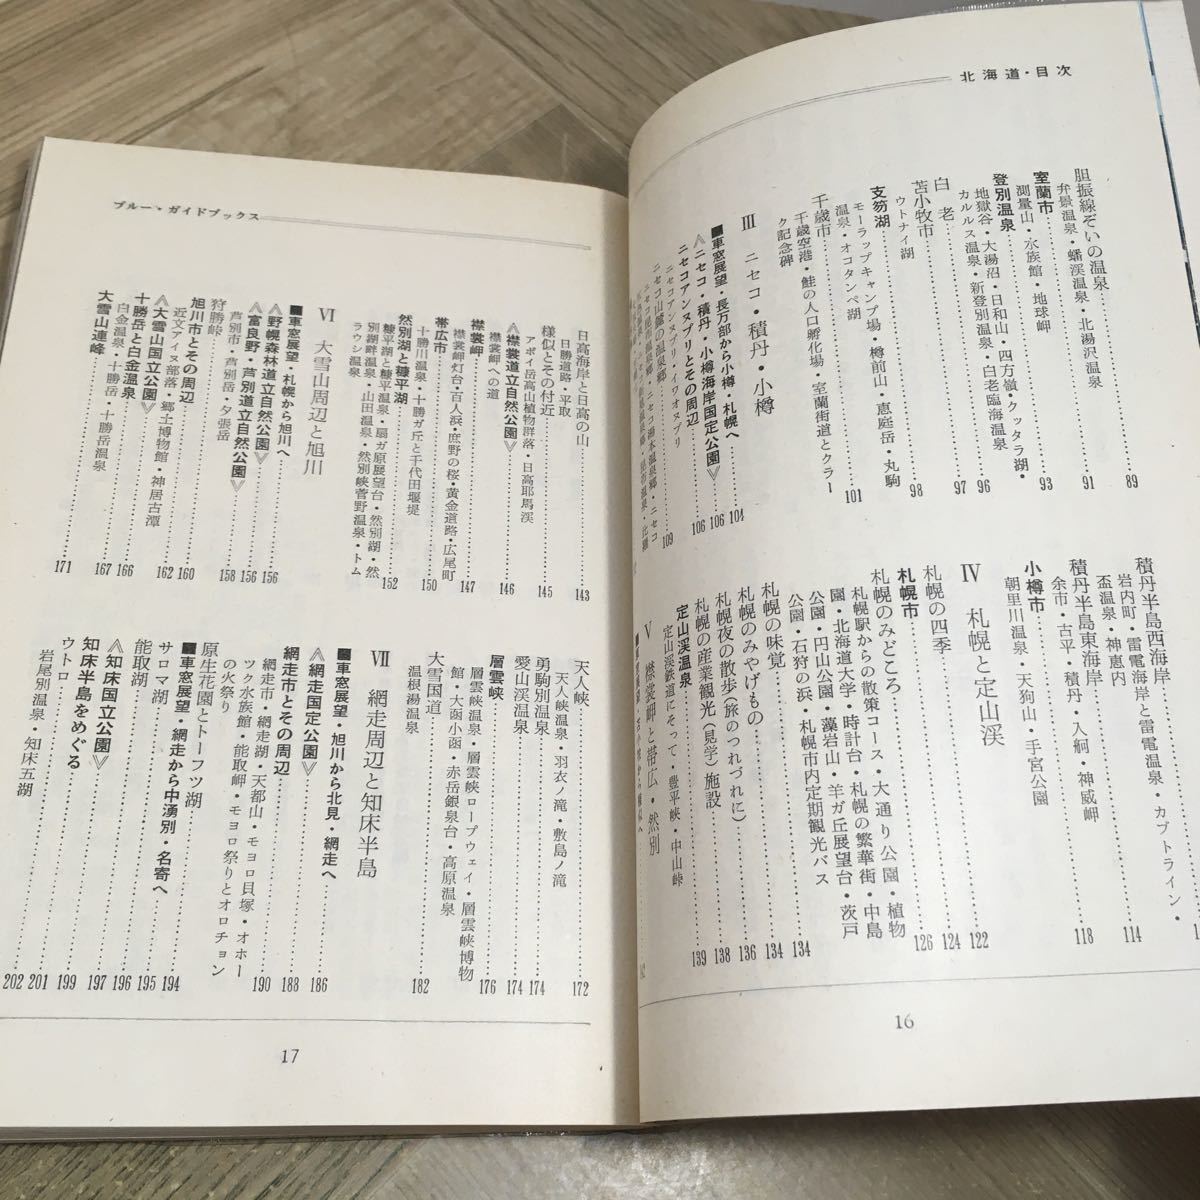 北海道・目次
胆振線ぞいの温泉……89
弁景温泉・蟠渓温泉・北湯沢温泉
室蘭市……91
測量山・水族館・地球岬
登別温泉……93
地獄谷・大湯沼・日和山・四方嶺・クッタラ湖・
カルルス温泉・新登別温泉・白老臨海温泉
白老……96
苫小牧市……97
ウトナイ湖
支笏湖……98
モーラップキャンプ場・樽前山・恵庭岳・丸駒
温泉・オコタンペ湖
千歳市……101
千歳空港・鮭の人口孵化場・室蘭街道とクラー
ク記念碑
Ⅲ ニセコ・積丹・小樽
■車窓展望・長万部から小樽・札幌へ……104
《ニセコ・積丹・小樽海岸国定公園》……106
ニセコアンヌプリとその周辺……106
ニセコアンヌプリ・イワオヌプリ
ニセコ山麓の温泉郷……109
積丹半島西海岸
岩内町・雷電海岸と雷電温泉・カブトライン・
盃温泉・神恵内
積丹半島東海岸……114
余市・古平・積丹・入舸・神威岬
小樽市……118
朝里川温泉・天狗山・手宮公園
Ⅳ 札幌と定山渓
札幌の四季……122
札幌市……124
札幌のみどころ……126
札幌駅からの散策コース・大通り公園・植物
園・北海道大学・時計台・札幌の繁華街・中島
公園・円山公園・藻岩山・羊ガ丘展望台・茨戸
公園・石狩の浜・札幌市内定期観光バス
札幌の味覚……134
札幌のみやげもの……134
札幌夜の散歩(旅のつれづれに)……136
札幌の産業観光(見学)施設……138
定山渓温泉……139
定山渓鉄道にそって・豊平峡・中山峠
Ⅴ 襟裳岬と帯広・然別
16
ブルー・ガイドブックス
日高海岸と日高の山……143
日勝道路・平取
様似とその付近……145
アポイ岳高山植物群落・日高耶馬渓
《襟裳道立自然公園》……146
襟裳岬への道
襟裳岬……147
襟裳岬灯台・百人浜・庶野の桜・黄金道路・広尾町
帯広市……150
十勝川温泉・十勝ガ丘と千代田堰堤
然別湖と糠平湖……152
糠平湖と糠平温泉・扇ガ原展望台・然別湖・然
別湖畔温泉・山田温泉・然別峡菅野温泉・トム
ラウシ温泉
Ⅵ 大雪山周辺と旭川
■車窓展望・札幌から旭川へ……156
《野幌森林道立自然公園》……156
《富良野・芦別道立自然公園》……158
芦別市・芦別岳・夕張岳
狩勝峠……160
旭川市とその周辺……162
近文アイヌ部落・郷土博物館・神居古潭
《大雪山国立公園》……166
十勝岳と白金温泉……167
白金温泉・十勝岳・十勝岳温泉
大雪山連峰……171
天人峡……172
天人峡温泉・羽衣ノ滝・敷島ノ滝
勇駒別温泉……174
愛山渓温泉……174
層雲峡……176
層雲峡温泉・層雲峡ロープウェイ・層雲峡博物
館・大函小函・赤岳銀泉台・高原温泉
大雪国道……182
温根湯温泉
Ⅶ 網走周辺と知床半島
■車窓展望・旭川から北見・網走へ……186
《網走国定公園》……188
網走市とその周辺……190
網走市・網走湖・天都山・モヨロ貝塚・オホー
ツク水族館・能取岬・モヨロ祭りとオロチョン
の火祭り
原生花園とトーフツ湖……194
■車窓展望・網走から中湧別・名寄へ……195
サロマ湖……196
能取湖……197
《知床国立公園》……199
知床半島をめぐる……201
ウトロ……202
岩尾別温泉・知床五湖
17